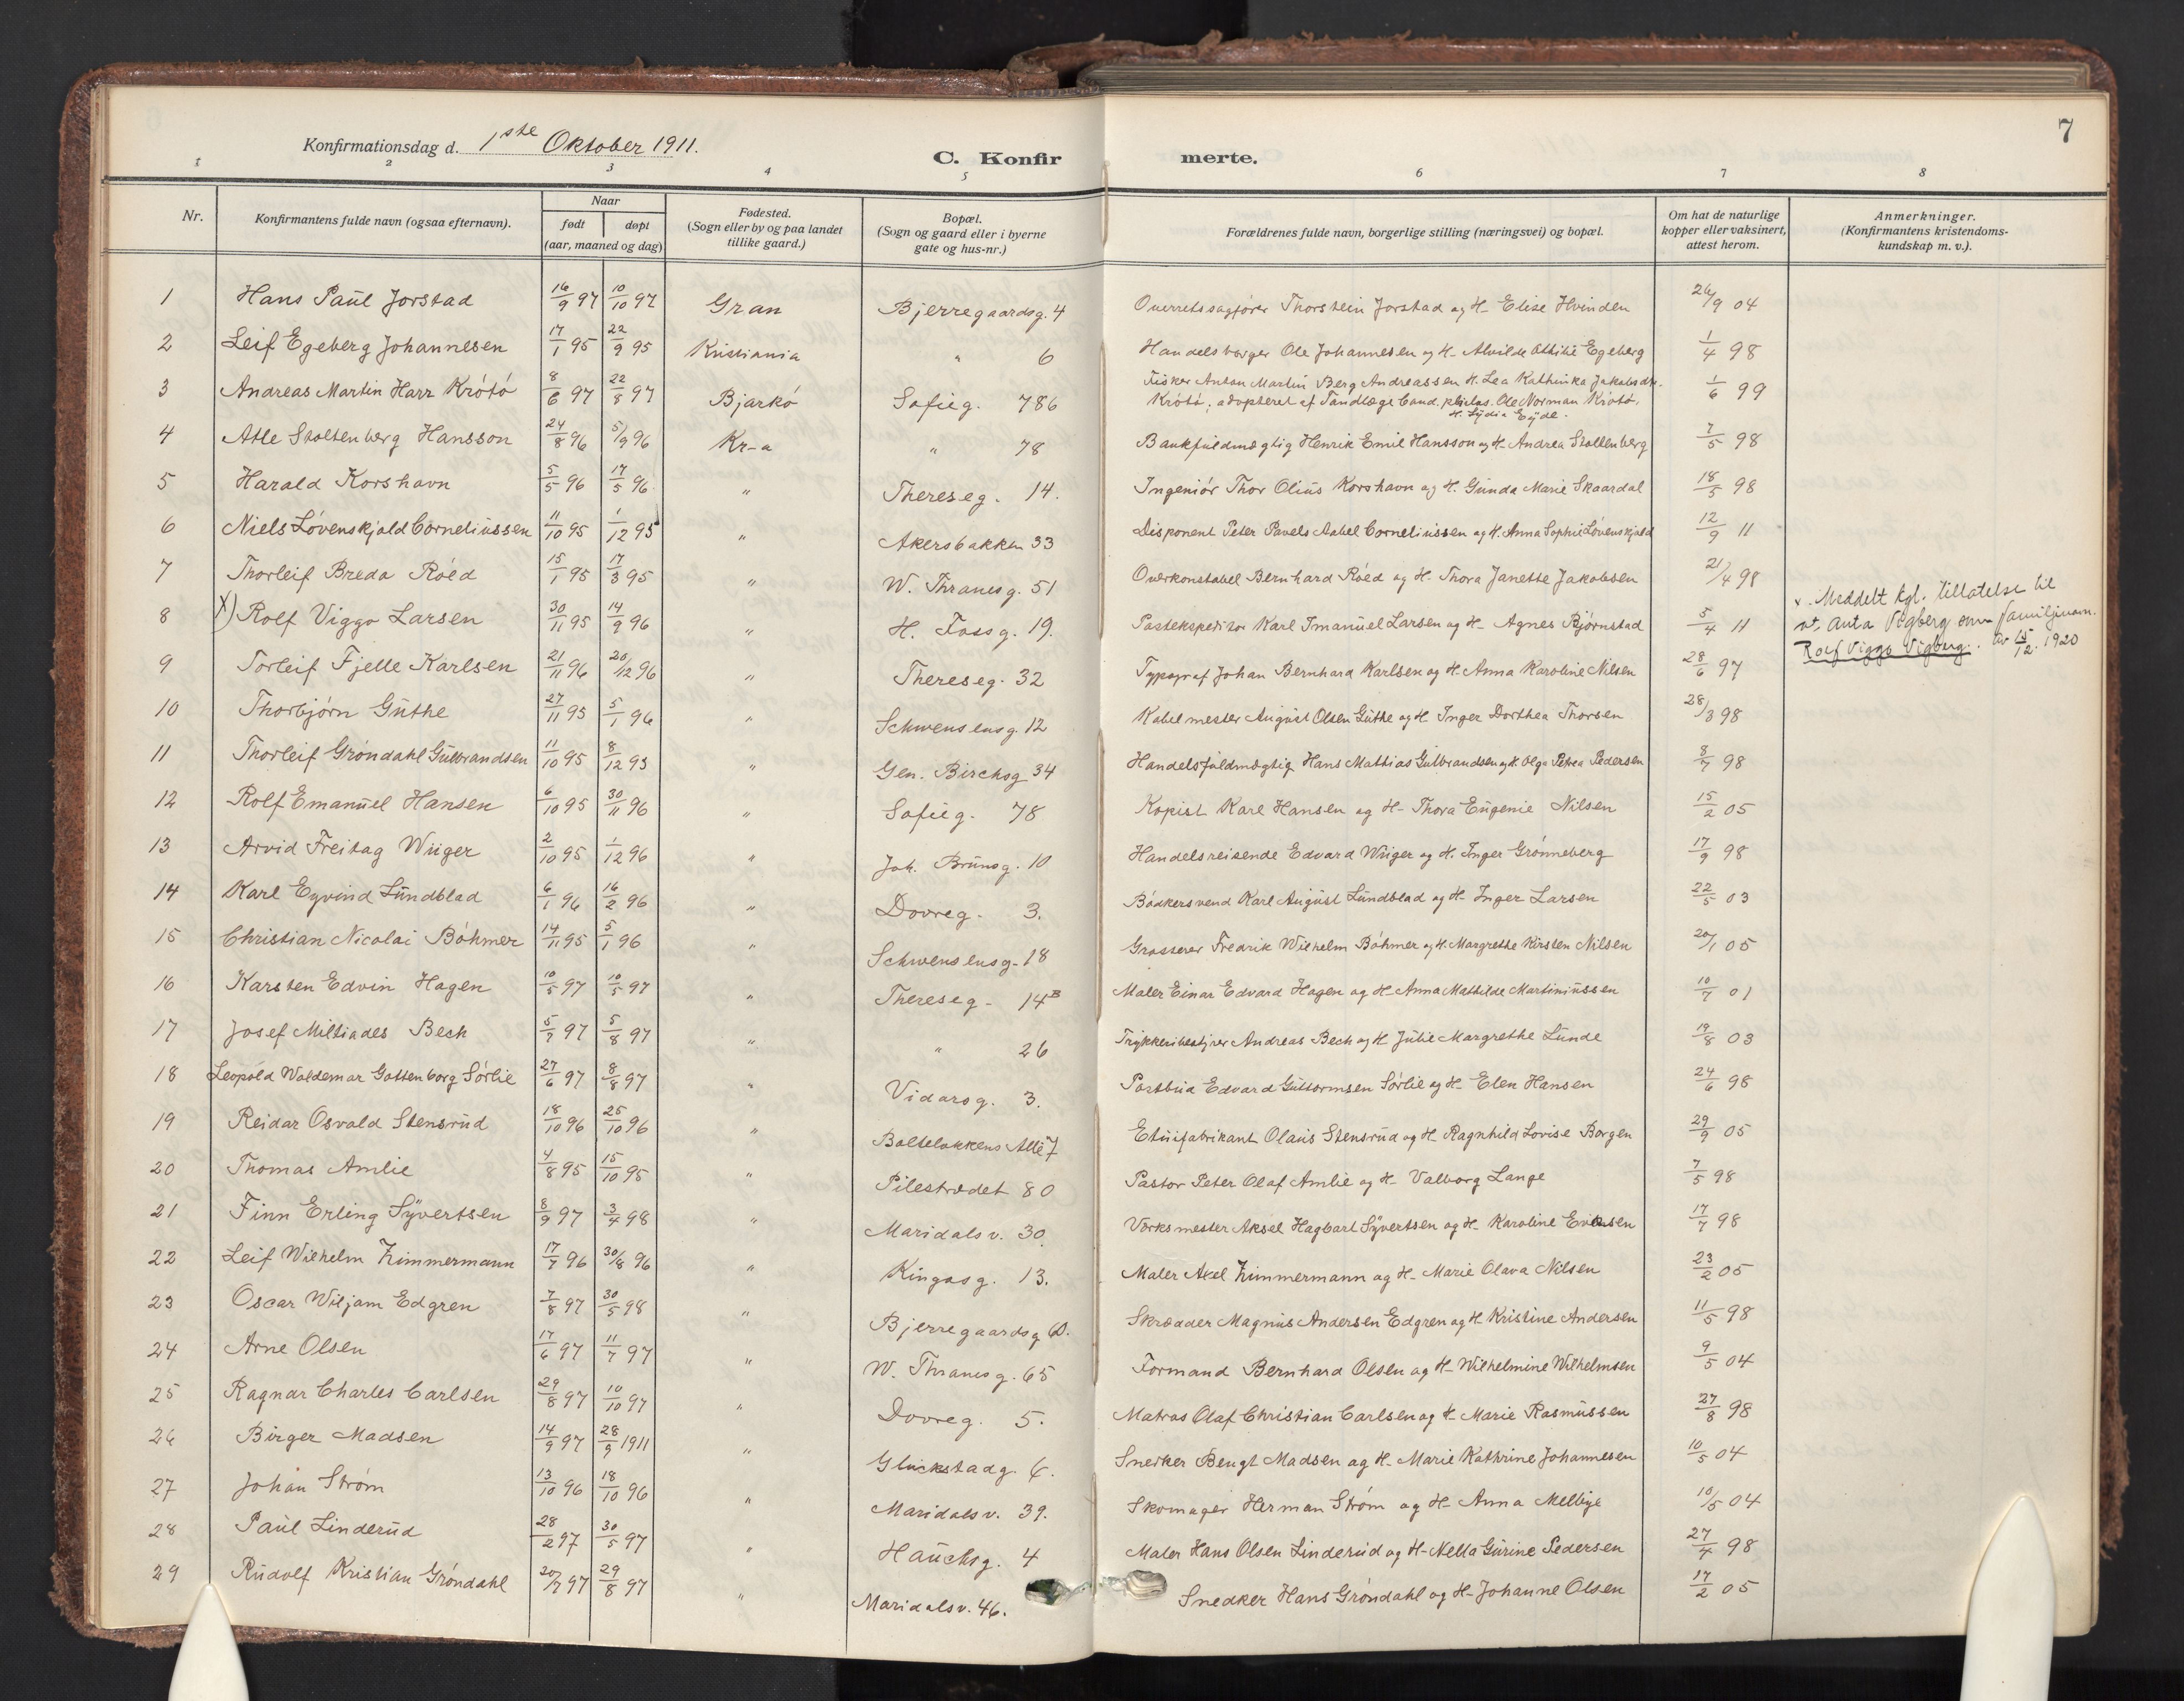 7
Konfirmationsdag d. 1ste Oktober 1911.
C. Konfirmerte.
1 2 3 4 5 6 7 8
Nr. Konfirmantens fulde navn (ogsaa efternavn). Naar født døpt (aar, maaned og dag) Fødested. (Sogn eller by og paa landet tillike gaard.) Bopæl. (Sogn og gaard eller i byerne gate og hus-nr.) Forældrenes fulde navn, borgerlige stilling (næringsvei) og bopæl. Om hat de naturlige kopper eller vaksinert, attest herom. Anmerkninger. (Konfirmantens kristendoms-kundskap m. v.).
1 Hans Paul Jorstad 16/9 97 10/10 97 Gran Bjerregaardsg. 4 Overretssagfører Thorstein Jorstad og H- Elise Hvinden 26/9 04
2 Leif Egeberg Johannesen 17/1 95 22/9 95 Kristiania " 6 Handelsborger Ole Johannesen og H- Alvilde Ottilie Egeberg 1/4 98
3 Andreas Martin Harr Krötö 8/6 97 22/8 97 Bjarkö Sofieg. 78b Fisker Anton Martin Berg Andreassen H. Lea Kathinka Jakobsdtr.
Krötö, adopteret af Tandlæge Cand. philos. Ole Norman Krötö, H. Lydia Eyde. 1/6 99
4 Atle Stoltenberg Hansson 24/8 96 5/9 96 Kr-a " 78 Bankfuldmægtig Henrik Emil Hansson og H- Andrea Stoltenberg 7/5 98
5 Harald Korshavn 5/5 96 17/5 96 " Thereseg. 14. Ingeniör Thor Olius Korshavn og H. Gunda Marie Skaardal 18/5 98
6 Niels Lövenskjold Corneliussen 11/10 95 1/12 95 " Akersbakken 33 Disponent Peter Pavels Aabel Corneliussen og H. Anna Sophie Lövenskjold 12/9 11
7 Thorleif Breda Röed 15/1 95 17/3 95 " W. Thranesg. 51 Overkonstabel Bernhard Röed og H- Thora Janette Jakobsen 21/4 98
8 X) Rolf Viggo Larsen 30/11 95 14/9 96 " H. Fossg. 19. Postekspeditor Karl Imanuel Larsen og H- Agnes Bjørnstad 5/4 11 x. Meddelt kgl. tillatelse til
at anta Vigberg som familjenavn.
Rolf Viggo Vigberg. Av 15/12. 1920
9 Torleif Fjelle Karlsen 21/11 96 20/12 96 " Thereseg. 32 Typograf Johan Bernhard Karlsen og H- Anna Karoline Nilsen 28/6 97
10 Thorbjörn Guthe 27/11 95 5/1 96 " Schwensensg. 12 Kabelmester August Olsen Guthe og H. Inger Dorthea Thorsen 28/3 98
11 Thorleif Gröndahl Gulbrandsen 11/10 95 8/12 95 " Gen. Birchsg 34 Handelsfuldmægtig Hans Mathias Gulbrandsen og H. Olga Petrea Pedersen 8/7 98
12 Rolf Emanuel Hansen 6/10 95 30/11 96 " Sofieg. 78 Kopist Karl Hansen og H- Thora Eugenie Nilsen 15/2 05
13 Arvid Freitag Wiiger 2/10 95 1/12 96 " Joh. Brunsg. 10 Handelsreisende Edvard Wiiger og H. Inger Grönneberg 17/9 98
14 Karl Eyvind Lundblad 6/1 96 16/2 96 " Dovreg. 3. Bödkersvend Karl August Lundblad og H- Inger Larsen 22/5 03
15 Christian Nicolai Böhmer 14/11 95 5/1 96 " Schwensensg- 18 Grosserer Fredrik Wilhelm Böhmer og H. Margrethe Kirsten Nilsen 20/1 05
16 Karsten Edvin Hagen 10/5 97 10/5 97 " Thereseg- 14B Maler Einar Edvard Hagen og H- Anna Mathilde Martiniussen 10/7 01
17 Josef Miltiades Bech 5/7 97 5/8 97 " " 26 Trykkeribestyrer Andreas Bech og H Julie Margrethe Lunde 19/8 03
18 Leopold Waldemar Gottenborg Sörlie 27/6 97 8/8 97 " Vidarsg. 3. Postbud Edvard Guttormsen Sörlie og H- Elen Hansen 24/6 98
19 Reidar Osvald Stensrud 18/10 96 25/10 96 " Bolteløkkens Allé 7 Etuifabrikant Olaus Stensrud og H- Ragnhild Lovise Borgen 29/9 05
20 Thomas Amlie 4/8 95 15/10 95 " Pilestrædet 80 Pastor Peter Olaf Amlie og H- Valborg Lange 7/5 98
21 Finn Erling Syvertsen 8/9 97 3/4 98 " Maridalsv. 30. Verksmester Aksel Hagbart Syvertsen og H- Karoline Evensen 17/7 98
22 Leif Wilhelm Zimmermann 17/7 96 30/8 96 " Kingosg. 13. Maler Axel Zimmermann og H- Marie Olava Nilsen 23/2 05
23 Oscar Wiljam Edgren 7/8 97 30/5 98 " Bjerregaardsg 60. Skrædder Magnus Andersen Edgren og H Kristine Andersen 11/5 98
24 Arne Olsen 17/6 97 11/7 97 " W. Thranesg. 65 Formand Bernhard Olsen og H- Wilhelmine Wilhelmsen 9/5 04
25 Ragnar Charles Carlsen 29/8 97 10/10 97 " Dovreg. 5. Matros Olaf Christian Carlsen og H- Marie Rasmussen 27/8 98
26 Birger Madsen 14/9 97 28/9 1911 " Gluckstadg. 6. Snekker Bengt Madsen og H- Marie Kathrine Johannesen 10/5 04
27 Johan Ström 13/10 96 18/10 96 " Maridalsv. 39. Skomager Herman Ström og H- Anna Melbye 10/5 04
28 Paul Linderud 28/2 97 30/5 97 " Hauchsg. 4 Maler Hans Olsen Linderud og H- Nella Gurine Pedersen 27/4 98
29 Rudolf Kristian Gröndahl 20/7 97 29/8 97 " Maridalsv. 46. Snedker Hans Gröndahl og H- Johanne Olsen 17/2 05